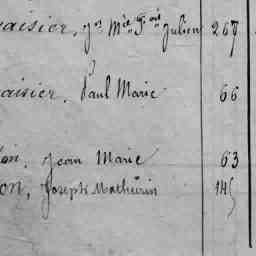 aisier, Jn Mie Fois Julien 267
aisier, Paul Marie 66
on, Jean Marie 63
on, Joseph Mathurin 145